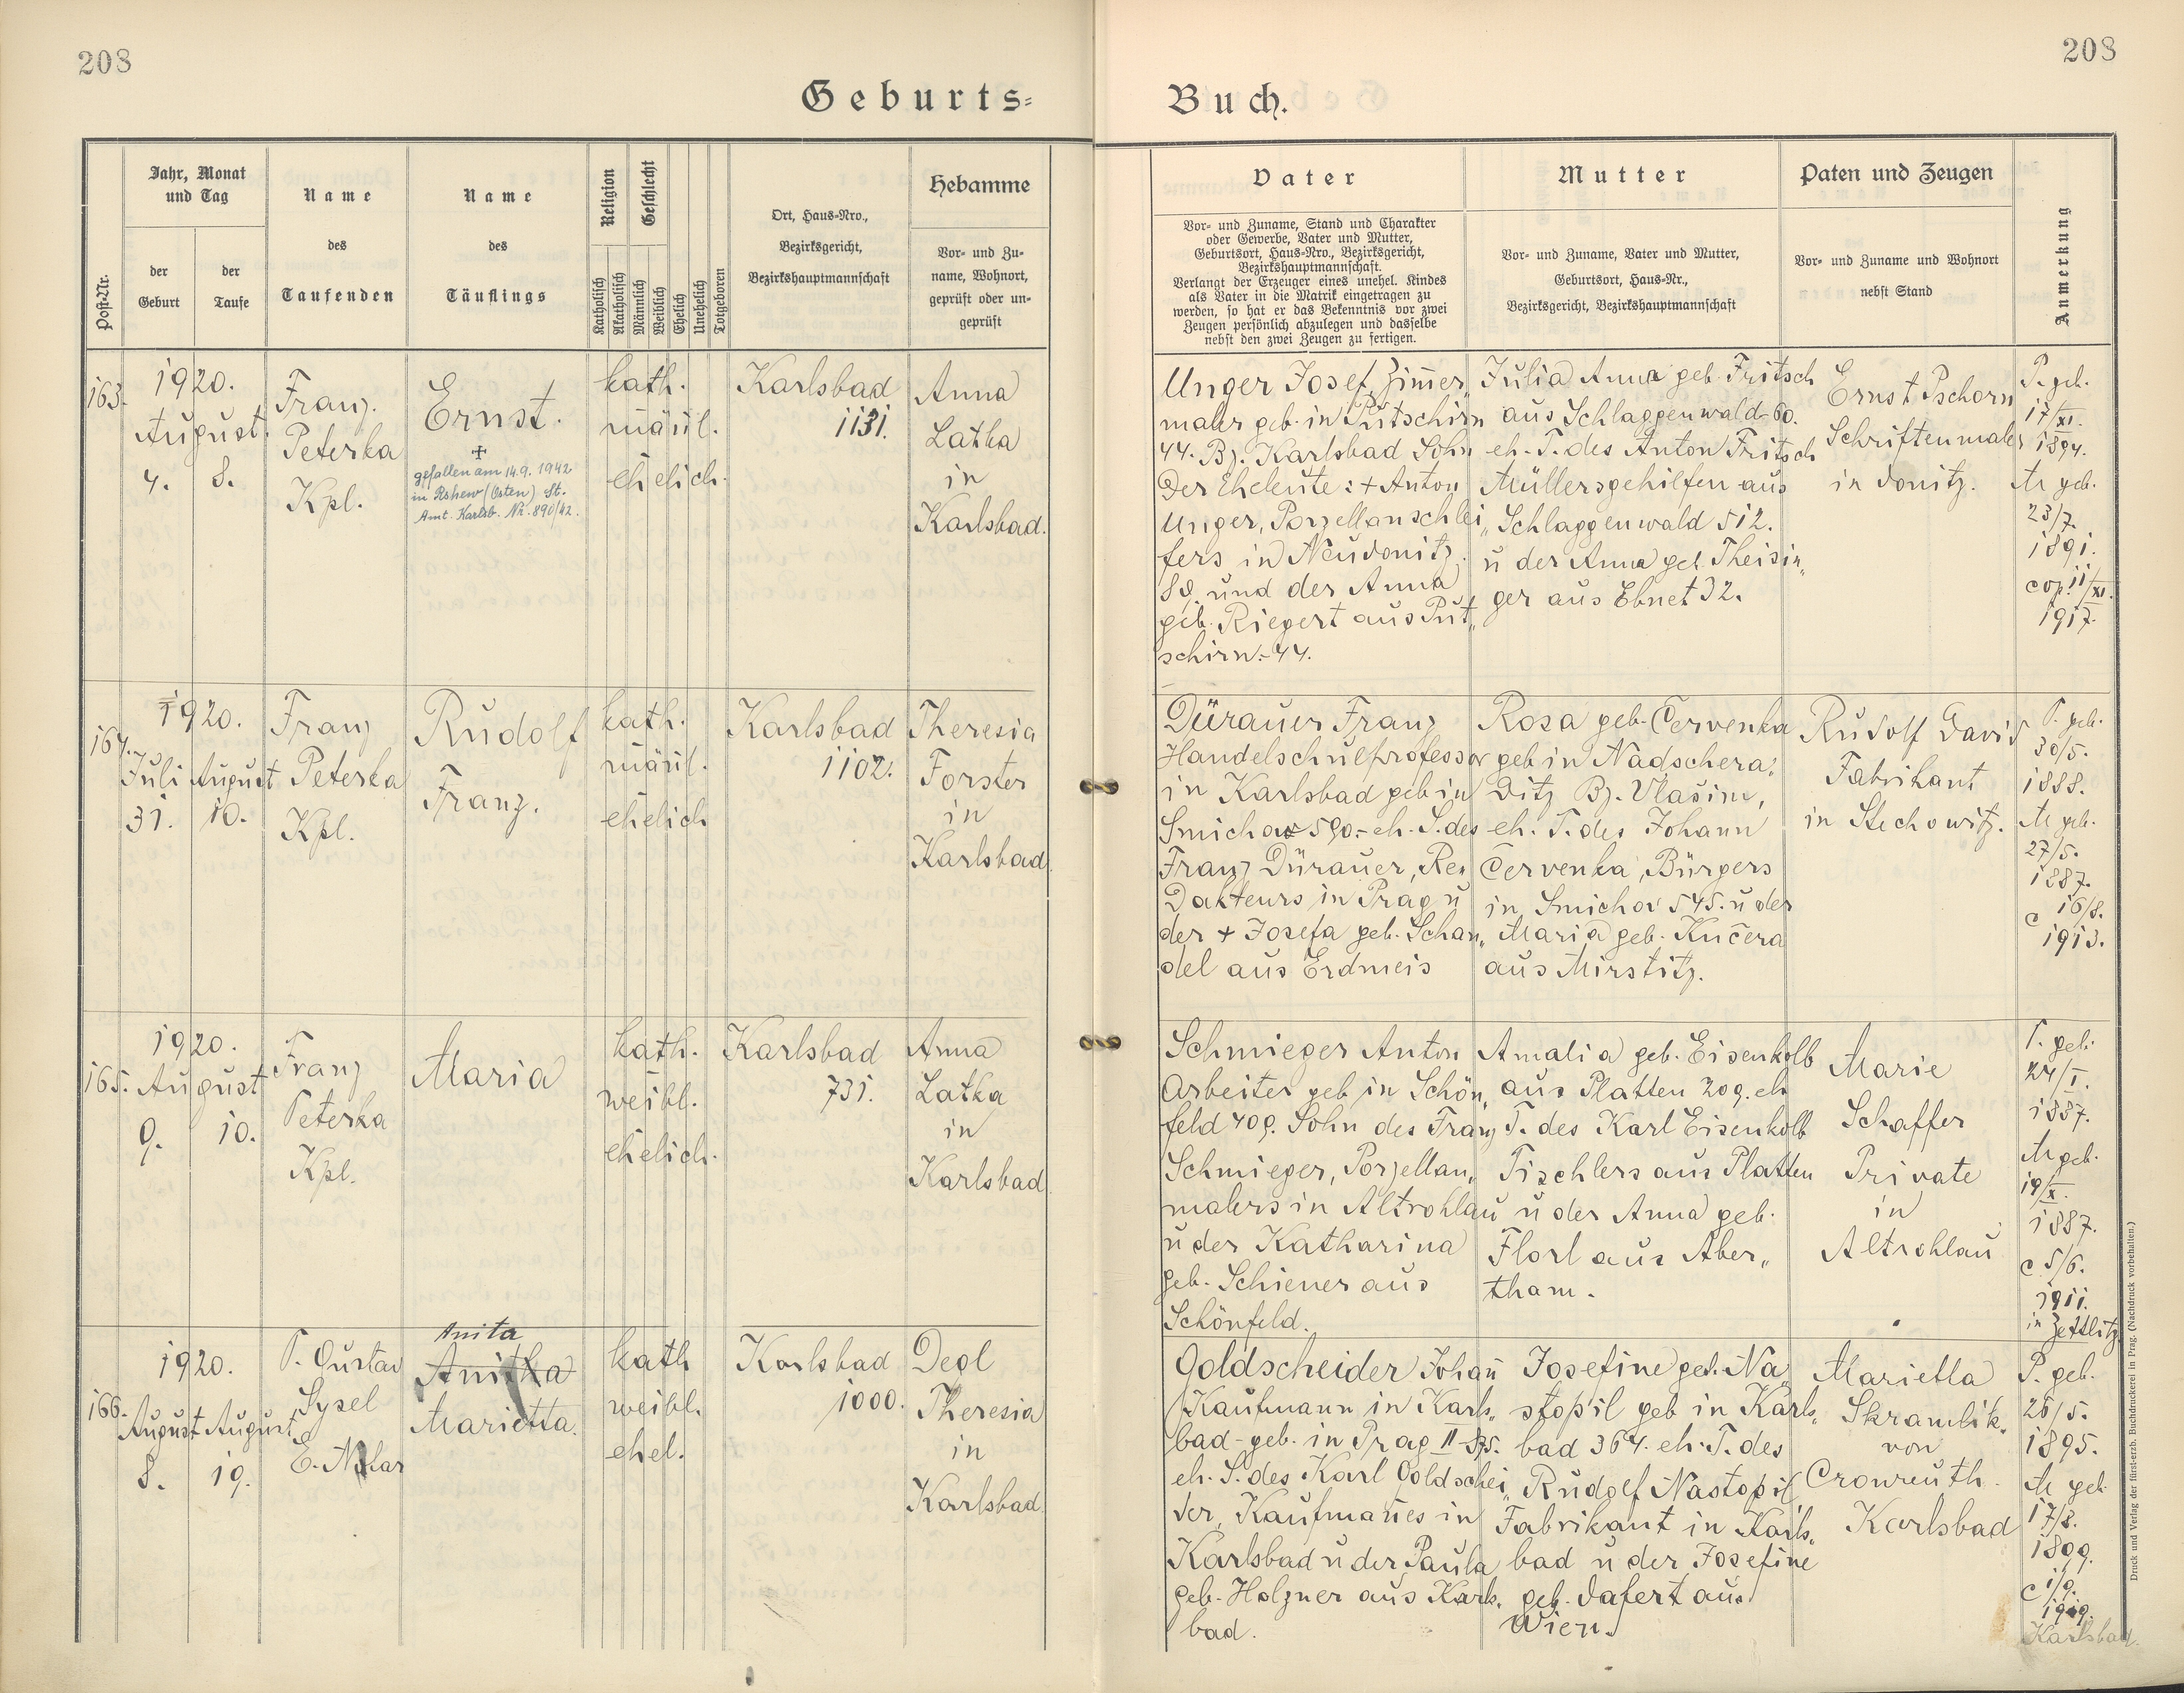 208
208
Geburts=
Buch.
Post-Nr.
Jahr, Monat
und Tag
der
Geburt
der
Taufe
Name
des
Taufenden
Name
des
Täuflings
Religion
Geschlecht
Katholisch
Akatholisch
Männlich
Weiblich
Ehelich
Unehelich
Totgeboren
Ort, Haus-Nro.,
Bezirksgericht,
Bezirkshauptmannschaft
Hebamme
Vor- und Zu-
name, Wohnort,
geprüft oder un-
geprüft
Vater
Vor- und Zuname, Stand und Charakter
oder Gewerbe, Vater und Mutter,
Geburtsort, Haus-Nro., Bezirksgericht,
Bezirkshauptmannschaft.
Verlangt der Erzeuger eines unehel. Kindes
als Vater in die Matrik eingetragen zu
werden, so hat er das Bekenntnis vor zwei
Zeugen persönlich abzulegen und dasselbe
nebst den zwei Zeugen zu fertigen.
Mutter
Vor- und Zuname, Vater und Mutter,
Geburtsort, Haus-Nr.,
Bezirksgericht, Bezirkshauptmannschaft
Paten und Zeugen
Vor- und Zuname und Wohnort
nebst Stand
Anmerkung
163.
1920.
August
4. 8.
Franz
Peterka
Kpl.
Ernst.
+
gefallen am 14.9.1942
in Rshew (Osten) St.
Amt. Karlsb. Nr. 890/42.
kath.
männl.
ehelich.
Karlsbad
1131.
Anna
Latka
in
Karlsbad.
Unger Josef, Zimmer„
maler geb. in Putschirn
44. Bz. Karlsbad Sohn
der Eheleute: + Anton
Unger, Porzellanschlei„
fers in Neudonitz
89. und der Anna
geb. Riegert aus Put„
schirn.- 44.
Julia Anna geb. Fritsch
aus Schlaggenwald 60.
eh. T. des Anton Fritsch
Müllersgehilfen aus
Schlaggenwald 512.
u der Anna geb. Theisin„
ger aus Ebnet 32.
Ernst Pschorn
Schriftenmaler
in Donitz.
P. geb.
17/XI.
1894.
M geb.
23/7.
1891.
cop. 11/XI.
1917.
164.
1920.
Juli August
31. 10.
Franz
Peterka
Kpl.
Rudolf
Franz.
kath.
männl.
ehelich
Karlsbad
1102.
Theresia
Forster
in
Karlsbad
Dürauer Franz
Handelschulprofessor
in Karlsbad geb in
Smichov 590.- eh. S. des
Franz Dürauer, Re„
dakteurs in Prag u
der + Josefa geb. Schan„
del aus Erdmeis
Rosa geb. Červenka
geb in Nadschera„
ditz Bz. Vlašim,
eh. T. des Johann
Červenka, Bürgers
in Smichov 545. u der
Maria geb. Kučera
aus Mirstitz.
Rudolf David
Fabrikant
in Stechowitz.
P. geb.
30/5.
1888.
M geb.
27/5.
1887.
c 16/8.
1913.
165.
1920.
August
9. 10.
Franz
Peterka
Kpl.
Maria
kath.
weibl.
ehelich.
Karlsbad
731.
Anna
Latka
in
Karlsbad
Schmieger Anton
Arbeiter geb in Schön„
feld 409. Sohn des Franz
Schmieger, Porzellan„
malers in Altrohlau
u der Katharina
geb. Schiener aus
Schönfeld.
Amalia geb. Eisenkolb
aus Platten 209. eh
T. des Karl Eisenkolb
Tischlers aus Platten
u der Anna geb.
Florl aus Aber„
tham.
Marie
Schaffer
Private
in
Altrohlau
P. geb.
24/I.
1887.
M geb.
19/X.
1887.
c 5/6.
1911.
in Zettlitz
166.
1920.
August August
8. 19.
P. Gustav
Sysel
Anita
Anitka
Marietta.
kath
weibl.
ehel.
Karlsbad
1000.
Degl
Theresia
in
Karlsbad
Goldscheider Johann
Kaufmann in Karls„
bad - geb. in Prag II-875.
eh. S. des Karl Goldschei„
der, Kaufmannes in
Karlsbad u der Paula
geb. Holzner aus Karls„
bad.
Josefine geb. Na„
stopil geb in Karls„
bad 364. eh. T. des
Rudolf Nastopil
Fabrikant in Karls„
bad u der Josefine
geb. Dafert aus
Wien.
Marietta
Skramlik
von
Cronreuth
Karlsbad
P. geb.
26/5.
1895.
M geb
17/8.
1899.
c 1/9.
1919.
Karlsbad.
Druck und Verlag der fürst-erzb. Buchdruckerei in Prag. (Nachdruck vorbehalten.)